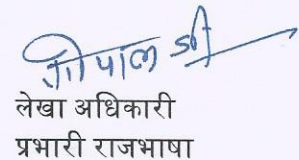 गोपाल जी
लेखा अधिकारी
प्रभारी राजभाषा